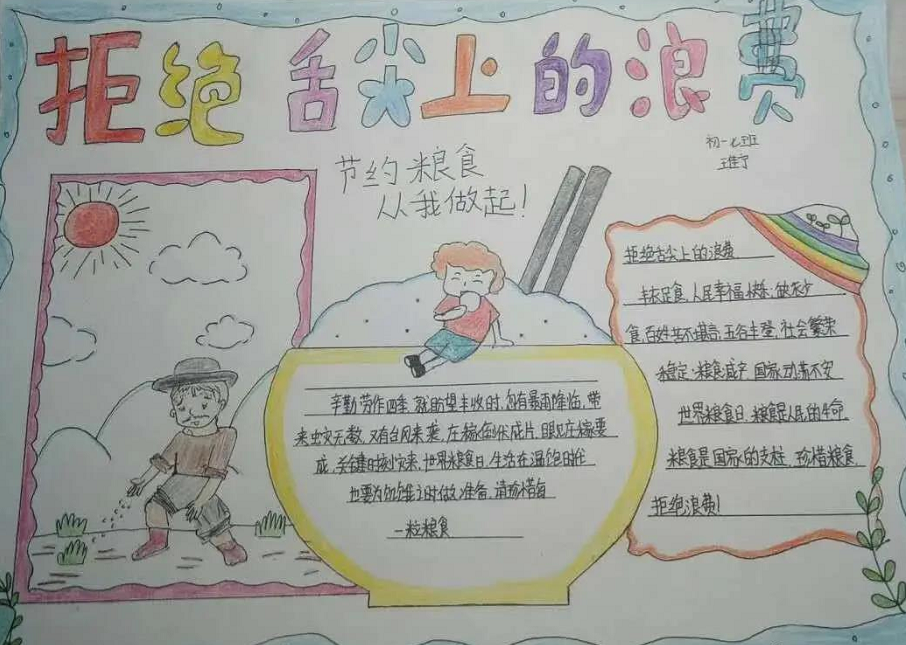 拒绝舌尖上的浪费
初一七班
节约粮食
从我做起!
辛勤劳作四季,就盼望丰收时,忽有暴雨降临,带
来虫灾无数,又有台风来袭,庄稼倒伏成片,眼见庄稼要
成,关键时刻灾来,世界粮食日,生活在温饱时代
也要为饥饿时做准备,请珍惜每
一粒粮食
拒绝舌尖上的浪费
丰衣足食,人民幸福快乐;缺衣少
食,百姓苦不堪言,五谷丰登,社会繁荣
稳定,粮食减产国家动荡不安
世界粮食日,粮食是人民的生命,
粮食是国家的支柱,珍惜粮食,
拒绝浪费!